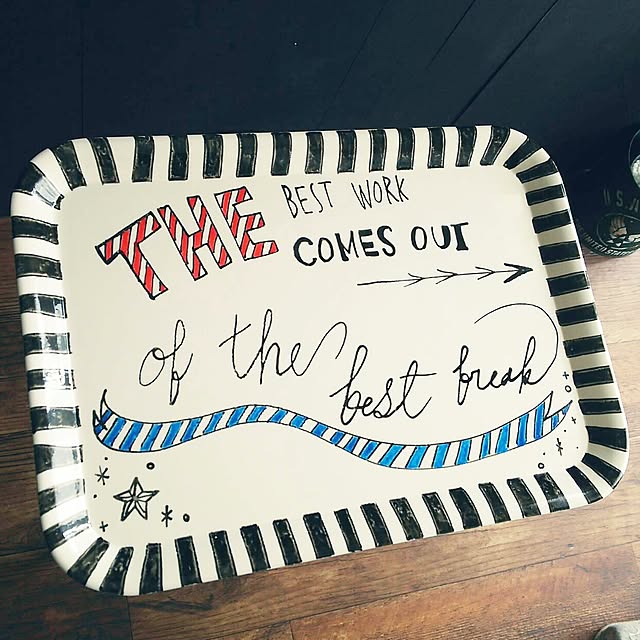 THE BEST WORK
COMES OUT
of the
best break